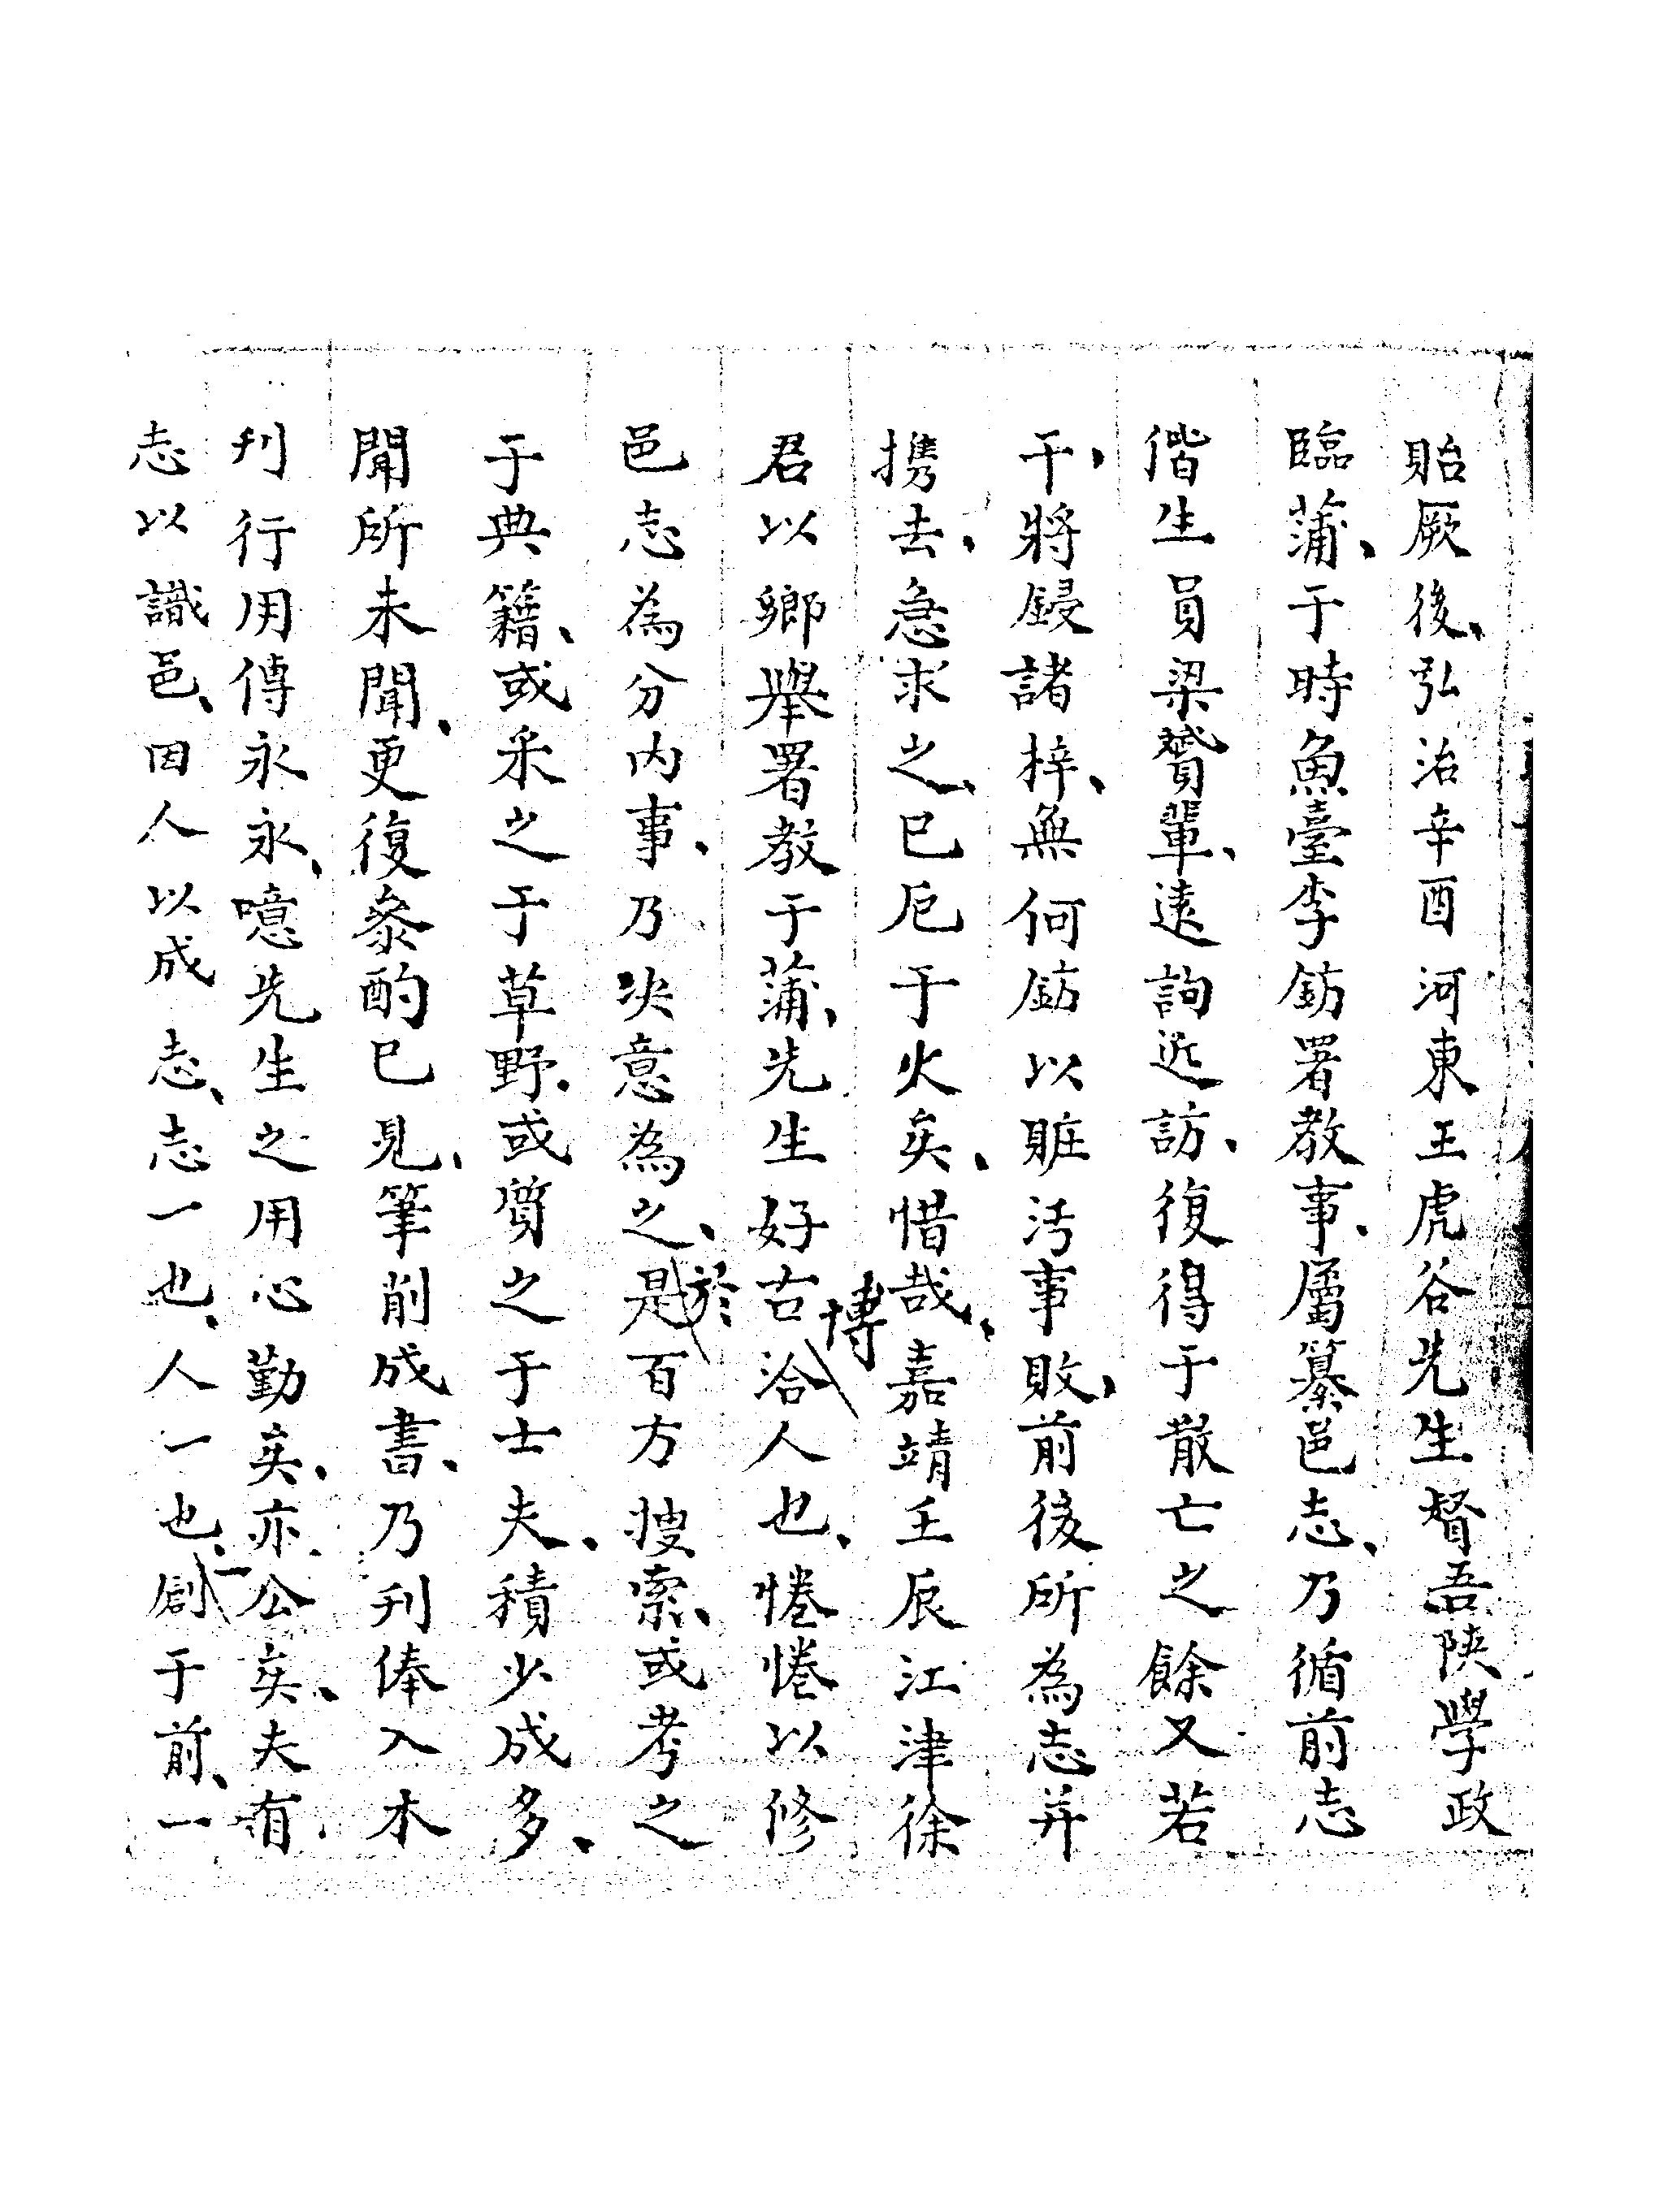 貽厥後、弘治辛酉河東王虎谷先生督吾陜學政
臨蒲、于時魚臺李鈁署教事、屬纂邑志、乃循前志
偕生員梁贇輩、遠詢近訪、復得于散亡之餘又若
干、將鋟諸梓、無何鈁以賍汚事敗、前後所為志并
携去、急求之、已厄于火矣、惜哉、嘉靖壬辰江津徐
君以鄉舉署教于蒲、先生好古博洽人也、惓惓以修
邑志為分内事、乃决意為之、於是百方搜索、或考之
于典籍、或采之于草野、或質之于士夫、積少成多、
聞所未聞、更復叅酌已見、筆削成書、乃刋俸入木
刋行用傳永永、噫先生之用心勤矣、亦公矣、夫有
志以識邑、因人以成志、志一也、人一也、一創于前、一